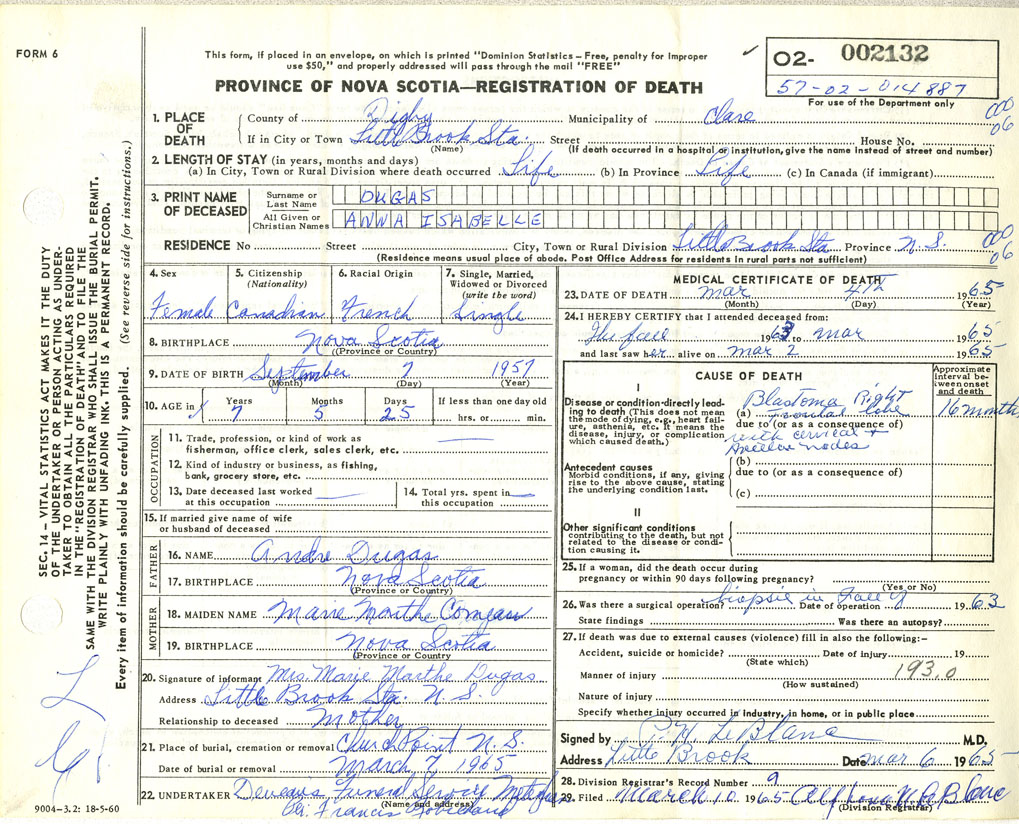 FORM 6
This form, if placed in an envelope, on which is printed "Dominion Statistics – Free, penalty for improper
use $50," and properly addressed will pass through the mail "FREE"
PROVINCE OF NOVA SCOTIA—REGISTRATION OF DEATH
✓ O2- 002132
57-02-014887
For use of the Department only
1. PLACE OF DEATH
County of Digby Municipality of Clare
000
06
If in City or Town Little Brook Sta. Street House No.
(Name) (If death occurred in a hospital or institution, give the name instead of street and number)
2. LENGTH OF STAY (in years, months and days)
(a) In City, Town or Rural Division where death occurred Life (b) In Province Life (c) In Canada (if immigrant)
3. PRINT NAME OF DECEASED
Surname or Last Name DUGAS
All Given or Christian Names ANNA ISABELLE
RESIDENCE No Street City, Town or Rural Division Little Brook Sta Province N.S.
000
06
(Residence means usual place of abode. Post Office Address for residents in rural parts not sufficient)
4. Sex
Female
5. Citizenship
(Nationality)
Canadian
6. Racial Origin
French
7. Single, Married,
Widowed or Divorced
(write the word)
Single
8. BIRTHPLACE Nova Scotia
(Province or Country)
9. DATE OF BIRTH September 7 1957
(Month) (Day) (Year)
10. AGE in Years Months Days If less than one day old
✓ 7 5 25 hrs. or min.
OCCUPATION
11. Trade, profession, or kind of work as
fisherman, office clerk, sales clerk, etc.
12. Kind of industry or business, as fishing,
bank, grocery store, etc.
13. Date deceased last worked
at this occupation
14. Total yrs. spent in
this occupation
15. If married give name of wife
or husband of deceased
FATHER
16. NAME Andre Dugas
17. BIRTHPLACE Nova Scotia
(Province or Country)
MOTHER
18. MAIDEN NAME Marie Marthe Comeau
19. BIRTHPLACE Nova Scotia
(Province or Country
20. Signature of informant Mrs. Marie Marthe Dugas
Address Little Brook Sta. N.S.
Relationship to deceased Mother
21. Place of burial, cremation or removal Church Point N.S.
Date of burial or removal March 7, 1965
22. UNDERTAKER Funeral Service
(Name and address)
Francis
9004-3.2: 18-5-60
MEDICAL CERTIFICATE OF DEATH
23. DATE OF DEATH mar 4th 1965
(Month) (Day) (Year)
24. I HEREBY CERTIFY that I attended deceased from:
The fall 1963 to mar 1965
and last saw her alive on mar 2 1965
CAUSE OF DEATH
Approximate interval between onset and death
I
Disease or condition directly leading to death (This does not mean the mode of dying, e.g., heart failure, asthenia, etc. It means the disease, injury, or complication which caused death.)
(a) Blastoma Right
lobe
due to (or as a consequence of)
with cervical +
nodes
16 months
Antecedent causes
Morbid conditions, if any, giving rise to the above cause, stating the underlying condition last.
(b)
due to (or as a consequence of)
(c)
II
Other significant conditions
contributing to the death, but not related to the disease or condition causing it.
25. If a woman, did the death occur during
pregnancy or within 90 days following pregnancy?
(Yes or No)
26. Was there a surgical operation? biopsie in Fall of Date of operation 1963
State findings Was there an autopsy?
27. If death was due to external causes (violence) fill in also the following:–
Accident, suicide or homicide? Date of injury 19
(State which)
Manner of injury 193.0
(How sustained)
Nature of injury
Specify whether injury occurred in industry, in home, or in public place
Signed by P. H. LeBlanc M.D.
Address Little Brook Date mar 6 1965
28. Division Registrar's Record Number 9
29. Filed March 10 1965 LeBlanc
(Division Registrar)
SEC. 14 – VITAL STATISTICS ACT MAKES IT THE DUTY
OF THE UNDERTAKER OR PERSON ACTING AS UNDER-
TAKER TO OBTAIN ALL THE PARTICULARS REQUIRED
IN THE "REGISTRATION OF DEATH" AND TO FILE THE
SAME WITH THE DIVISION REGISTRAR WHO SHALL ISSUE THE BURIAL PERMIT.
WRITE PLAINLY WITH UNFADING INK. THIS IS A PERMANENT RECORD.
Every item of information should be carefully supplied. (See reverse side for instructions.)